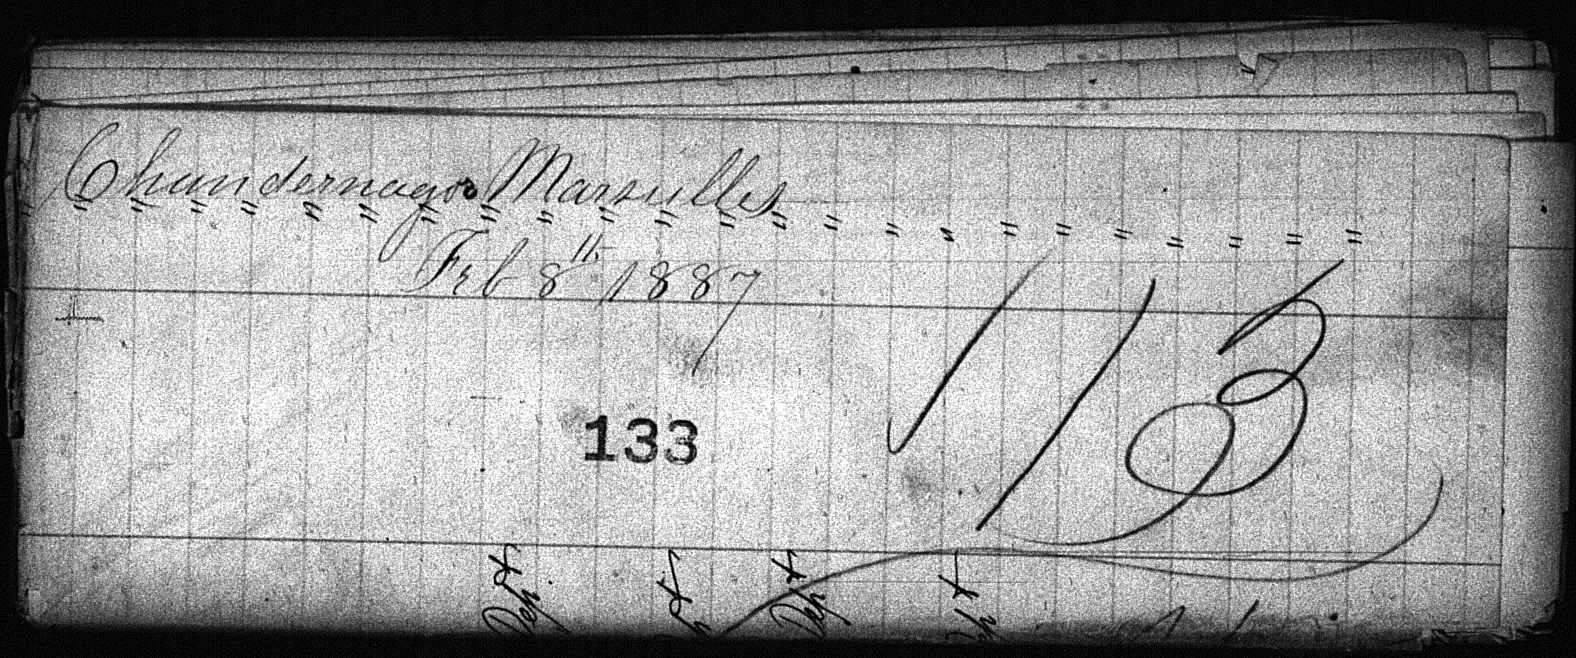 Chandernagor Marseilles
" " " " " " " " " " " " " " " " " " " " " " " "
Feb 8th 1887
133
Dept
Dept